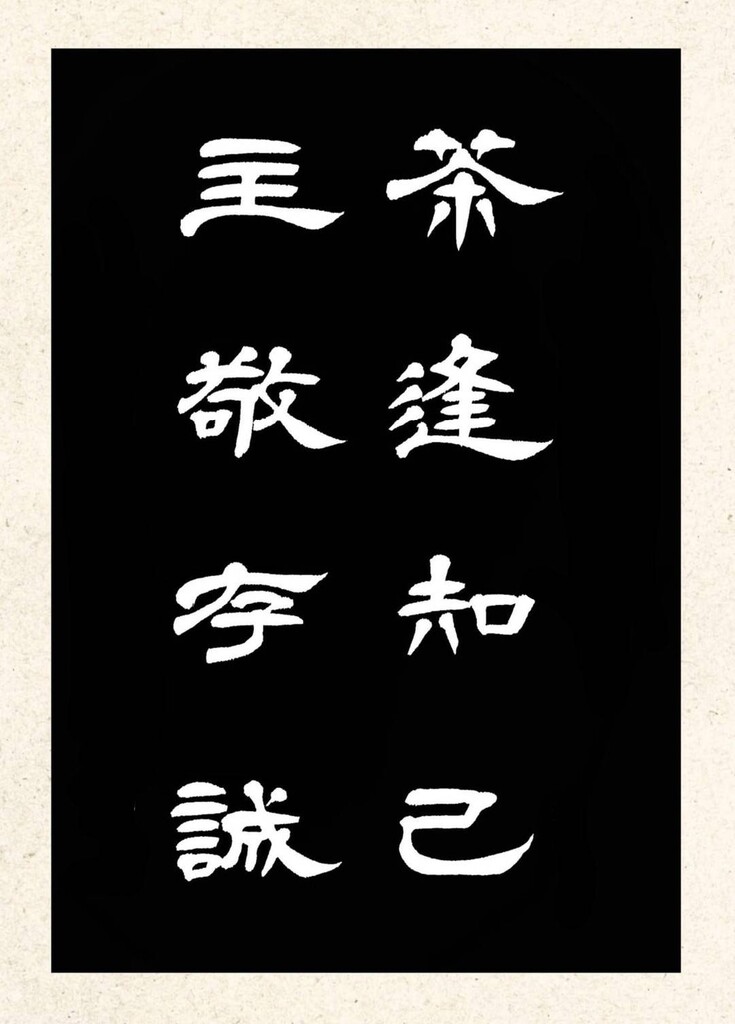 茶逢知己
主敬存誠